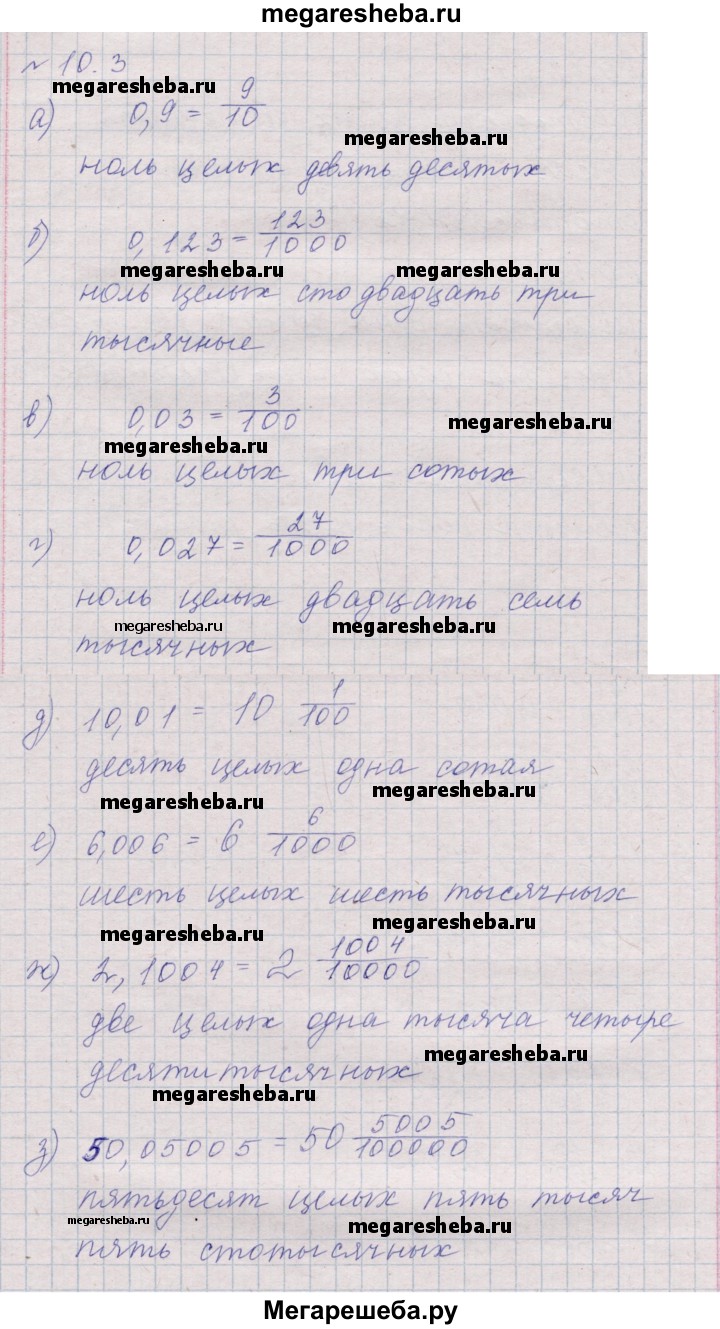 megaresheba.ru
№ 10.3
megaresheba.ru
а) 0,9 = 9/10
megaresheba.ru
ноль целых девять десятых
б) 0,123 = 123/1000
megaresheba.ru megaresheba.ru
ноль целых сто двадцать три
тысячные
в) 0,03 = 3/100
megaresheba.ru
megaresheba.ru
ноль целых три сотых
г) 0,027 = 27/1000
ноль целых двадцать семь
megaresheba.ru megaresheba.ru
тысячных
д) 10,01 = 10 1/100
десять целых одна сотая
megaresheba.ru megaresheba.ru
е) 6,006 = 6 6/1000
шесть целых шесть тысячных
megaresheba.ru megaresheba.ru
ж) 2,1004 = 2 1004/10000
две целых одна тысяча четыре
megaresheba.ru
десятитысячных
megaresheba.ru
з) 50,05005 = 50 5005/100000
пятьдесят целых пять тысяч
megaresheba.ru megaresheba.ru
пять стотысячных
Мегарешеба.ру